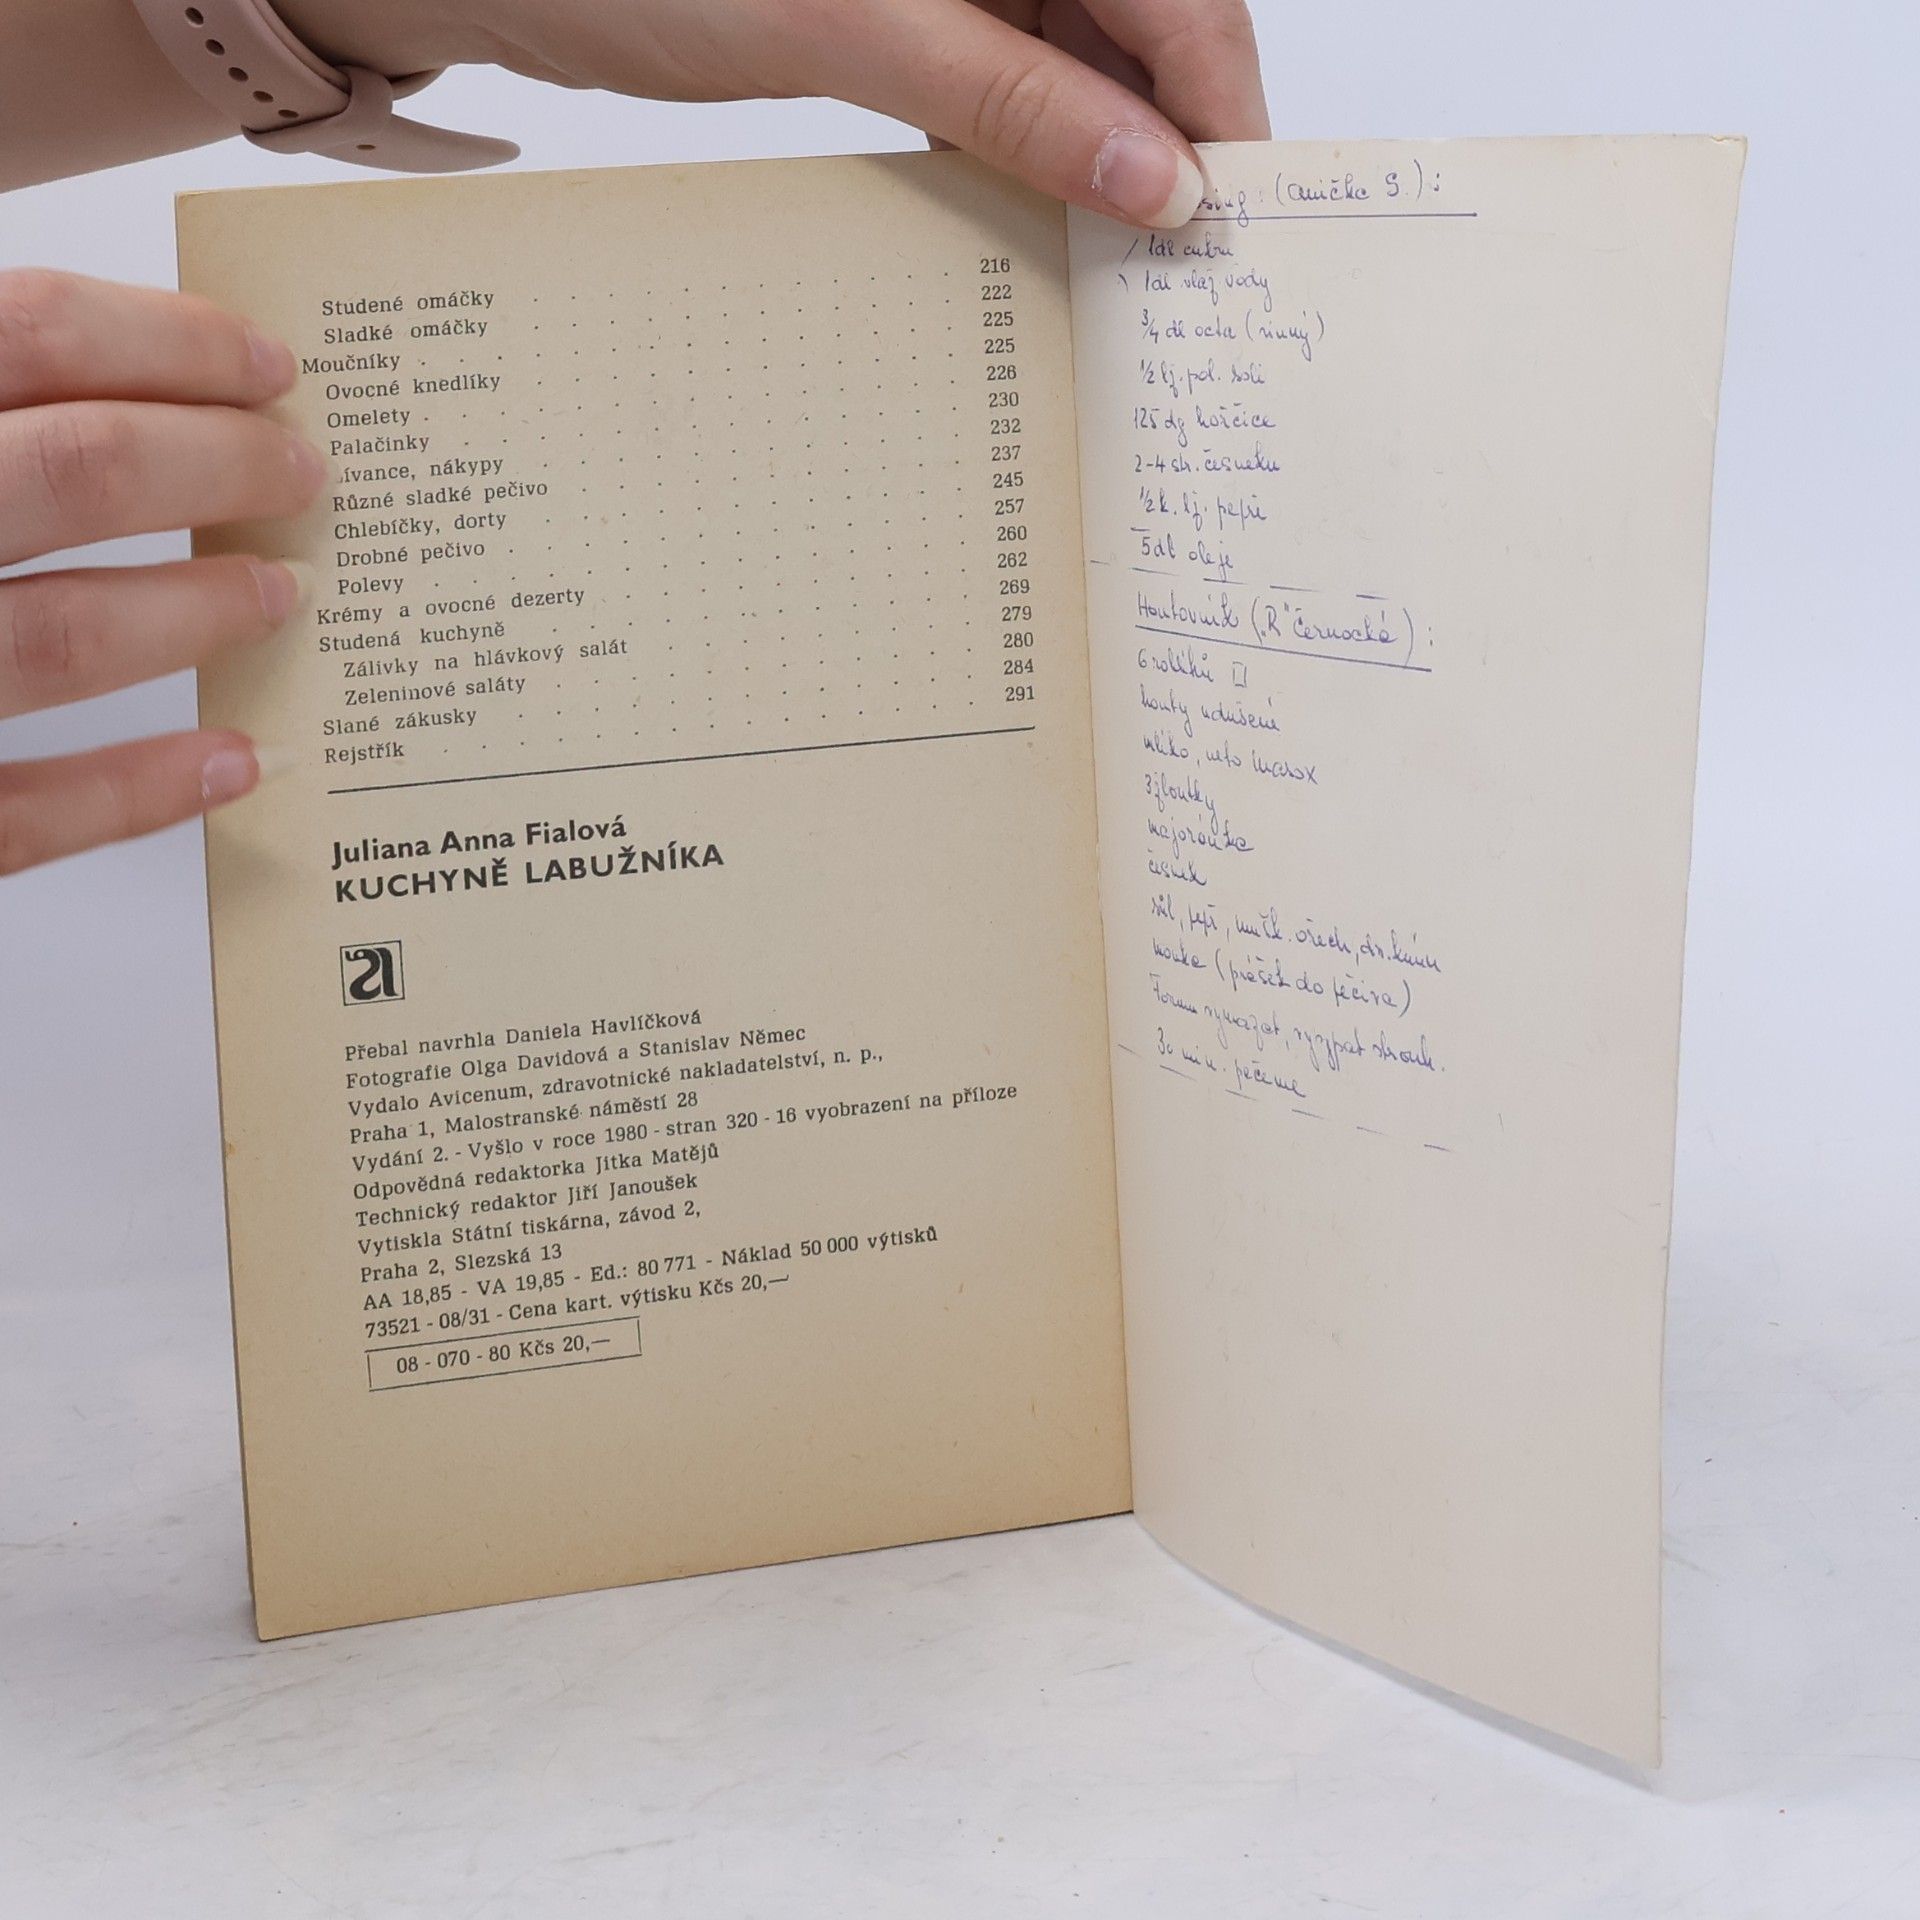 Studené omáčky . . . . . . . . 216
Sladké omáčky . . . . . . . . 222
Moučníky . . . . . . . . . . 225
Ovocné knedlíky . . . . . . . . 225
Omelety . . . . . . . . . . 226
Palačinky . . . . . . . . . 230
ívance, nákypy . . . . . . . . 232
Různé sladké pečivo . . . . . . . 237
Chlebíčky, dorty . . . . . . . . 245
Drobné pečivo . . . . . . . . . 257
Polevy . . . . . . . . . . 260
Krémy a ovocné dezerty . . . . . . . 262
Studená kuchyně . . . . . . . . 269
Zálivky na hlávkový salát . . . . . . 279
Zeleninové saláty . . . . . . . . 280
Slané zákusky . . . . . . . . . 284
Rejstřík . . . . . . . . . . 291
Juliana Anna Fialová
KUCHYNĚ LABUŽNÍKA
Přebal navrhla Daniela Havlíčková
Fotografie Olga Davidová a Stanislav Němec
Vydalo Avicenum, zdravotnické nakladatelství, n. p.,
Praha 1, Malostranské náměstí 28
Vydání 2. - Vyšlo v roce 1980 - stran 320 - 16 vyobrazení na příloze
Odpovědná redaktorka Jitka Matějů
Technický redaktor Jiří Janoušek
Vytiskla Státní tiskárna, závod 2,
Praha 2, Slezská 13
AA 18,85 - VA 19,85 - Ed.: 80 771 - Náklad 50 000 výtisků
73521 - 08/31 - Cena kart. výtisku Kčs 20,—
08 - 070 - 80 Kčs 20,—
ssing : (Anička S.) :
1dl cukru
1dl vlaž vody
3/4 dl octa (vinný)
1/2 lž. pol. soli
125 dg hořčice
2-4 str. česneku
1/2 k. lž. pepře
5dl oleje
Houbovník („R" Černocká) :
6 rohlíků
houby udušené
mlíko, nebo masox
3 žloutky
majoránka
česnek
sůl, pepř, mušk. ořech, dr. kmín
mouka (prášek do pečiva)
Formu vymazat, vysypat strouh.
30 min. pečeme